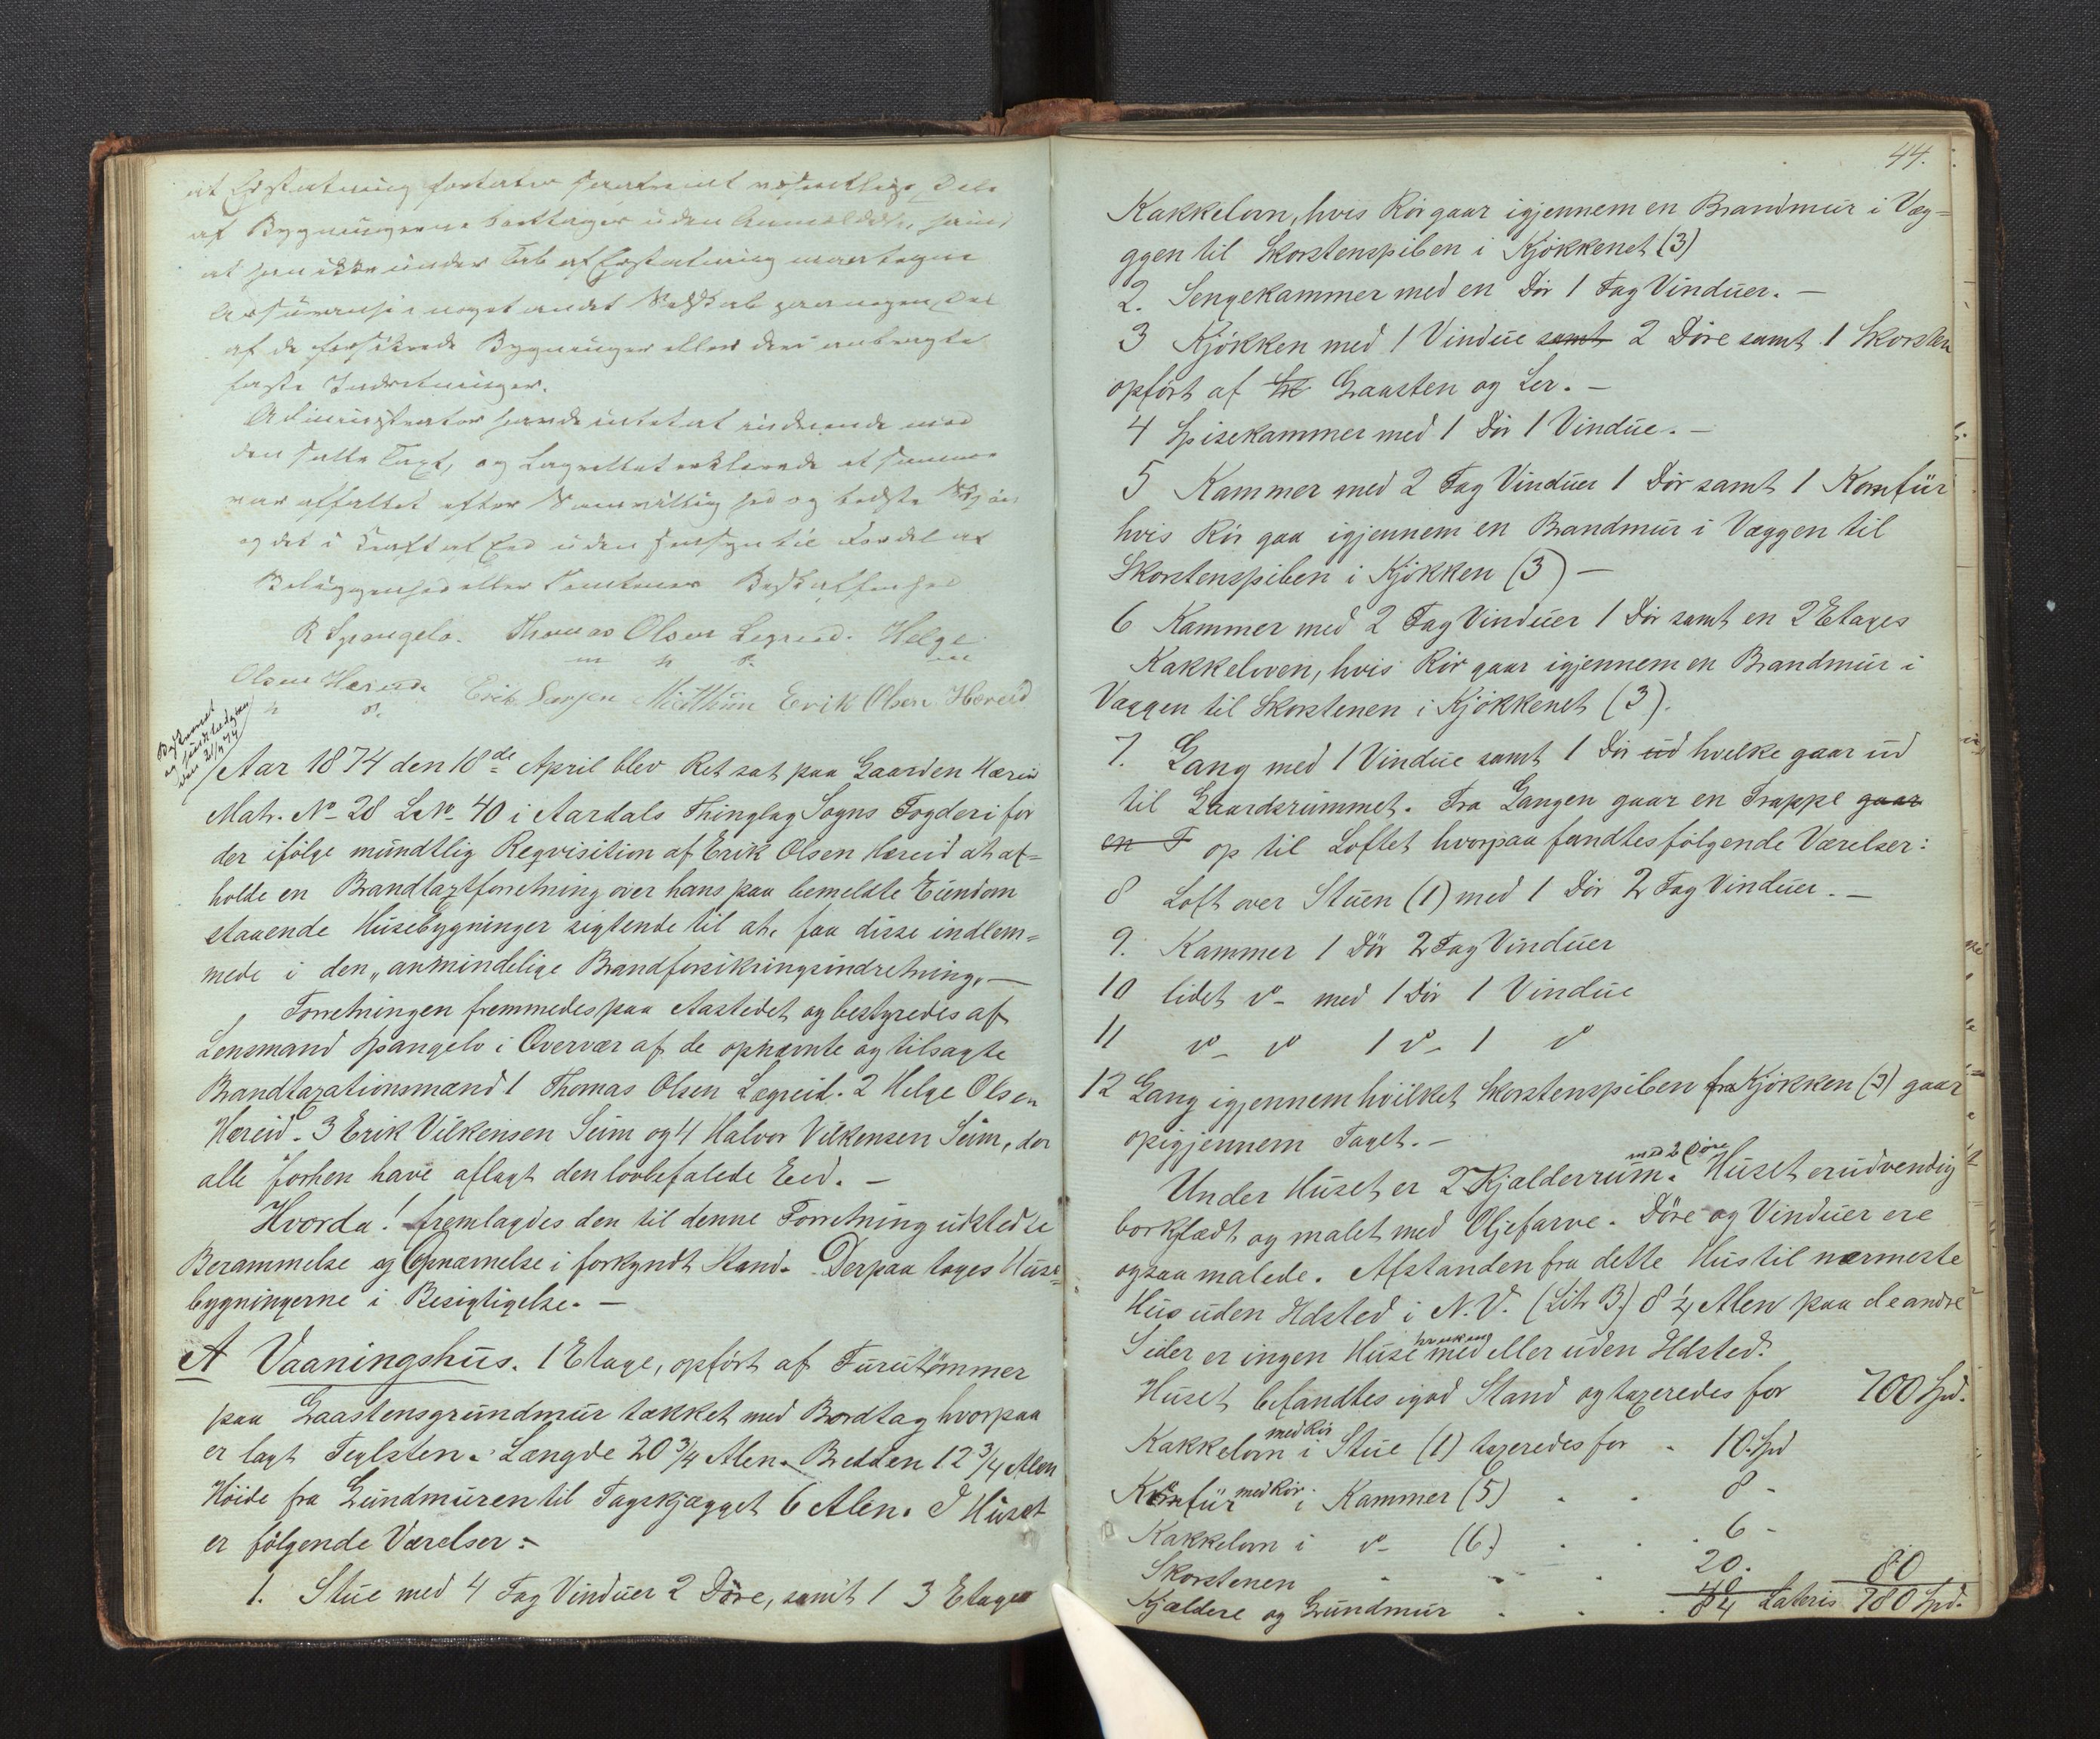 at Erstatning fortabes saafremt væsentlige Dele
af Bygningerne borttages uden Anmeldelse, samt
at han ikke under Tab af Erstatning maa tegne
Assurance i noget andet Selskab paa nogen Del
af de forsikrede Bygninger eller deri anbragte
faste Indretninger.
Administrator havde intet at erindre mod
den satte Taxt, og Lagrettet erklærede at samme
var affattet efter Samvittighed og bedste Skjøn
og det i Kraft af Eed uden Hensyn til Fordel af
Beliggenhed eller Tomtens Beskaffenhed
R Spangelo. Thomas Olsen Legreid. Helge
m p P. m
Olsen Hereid. Erik Larsen Midthun Erik Olsen Hæreid
p P.
Beskrevet
og
den 21/4 74
Aar 1874 den 18de April blev Ret sat paa Gaarden Hærei
Matr. No 28 L No 40 i Aardals Thinglag Sogns Fogderi for
der ifølge mündtlig Reqvisition af Erik Olsen Hæreid at af=
holde en Brandtaxtforretning over hans paa bemeldte Eiendom
staaende Husebygninger sigtende til at faa disse indlem=
mede i den „anmindelige Brandforsikringsindretning„ —
Forretningen fremmedes paa Aastedet og bestyredes af
Lensmand Spangelo i Overvær af de opnævnte og tilsagte
Brandtaxationsmænd 1 Thomas Olsen Lægreid. 2 Helge Olsen
Hæreid - 3 Erik Vilkensen Seim og 4 Halvor Vilkensen Seim, der
alle forhen have aflagt den lovbefalede Eed. —
Hvorda! fremlagdes den til denne Forretning udstedte
Berammelse og Opnævnelse i forkyndt Stand. Derpaa toges Huse=
bygningerne i Besigtigelse. —
A Vaaningshus. 1 Etage, opført af Furutømmer
paa Graastensgrundmur tækket med Bordtag hvorpaa
er lagt Teglsten. Længde 20 3/4 Alen. Bredden 12 3/4 Alen
Høide fra Grundmuren til Tagskjægget 6 Alen. I Huset
er følgende Værelser:
1. Stue med 4 Fag Vinduer 2 Døre, samt 1 3 Etages
44.
Kakkelovn, hvis Rør gaar igjennem en Brandmur i Væg=
ggen til Skorstenspiben i Kjøkkenet (3)
2. Sengekammer med en Dør 1 Fag Vinduer. —
3 Kjøkken med 1 Vindue samt 2 Døre samt 1 Skorsten
opført af Graasten og Ler. —
4 Spisekammer med 1 Dør 1 Vindue. —
5 Kammer med 2 Fag Vinduer 1 Dør samt 1 Komfür
hvis Rør gaa igjennem en Brandmur i Væggen til
Skorstenspiben i Kjøkken (3) —
6 Kammer med 2 Fag Vinduer 1 Dør samt en 2 Etages
Kakkeloven, hvis Rør gaar igjennem en Brandmur i
Væggen til Skorstenen i Kjøkkenet (3).
7. Gang med 1 Vindue samt 1 Dør ud hvilke gaar ud
til Gaardsrummet. Fra Gangen gaar en Trappe gaar
en T op til Loftet hvorpaa fandtes følgende Værelser:
8 Loft over Stuen (1) med 1 Dør 2 Fag Vinduer. —
9. Kammer 1 Dør 2 Fag Vinduer
10 lidet do - med 1 Dør 1 Vindue
11 do - do 1 do - 1 do
12 Gang igjennem hvilket Skorstenspiben fra Kjøkken (3) gaar
op igjennem Taget. —
med 2 Døre
Under Huset er 2 Kjælderrum. Huset er udvendig
bordklædt og malet med Oljefarve. Døre og Vinduer ere
ogsaa malede. Afstanden fra dette Hus til nærmeste
Hus uden Ildsted i N.V. (Litr B.) 8 1/4 Alen paa de andre
Sider er ingen Huse med eller uden Ildsted.
Huset befandtes i god Stand og taxeredes for 700 Spd.
med Rør
Kakkelovn i Stue (1) taxeredes for . 10. Spd
Komfür med Rør i Kammer (5) . . 8 -
Kakkelovn i do - (6.) . . 6 -
Skorstenen . . . 20. 80
Kjældere og Grundmur . . . 84 Lateris 780 Spd.